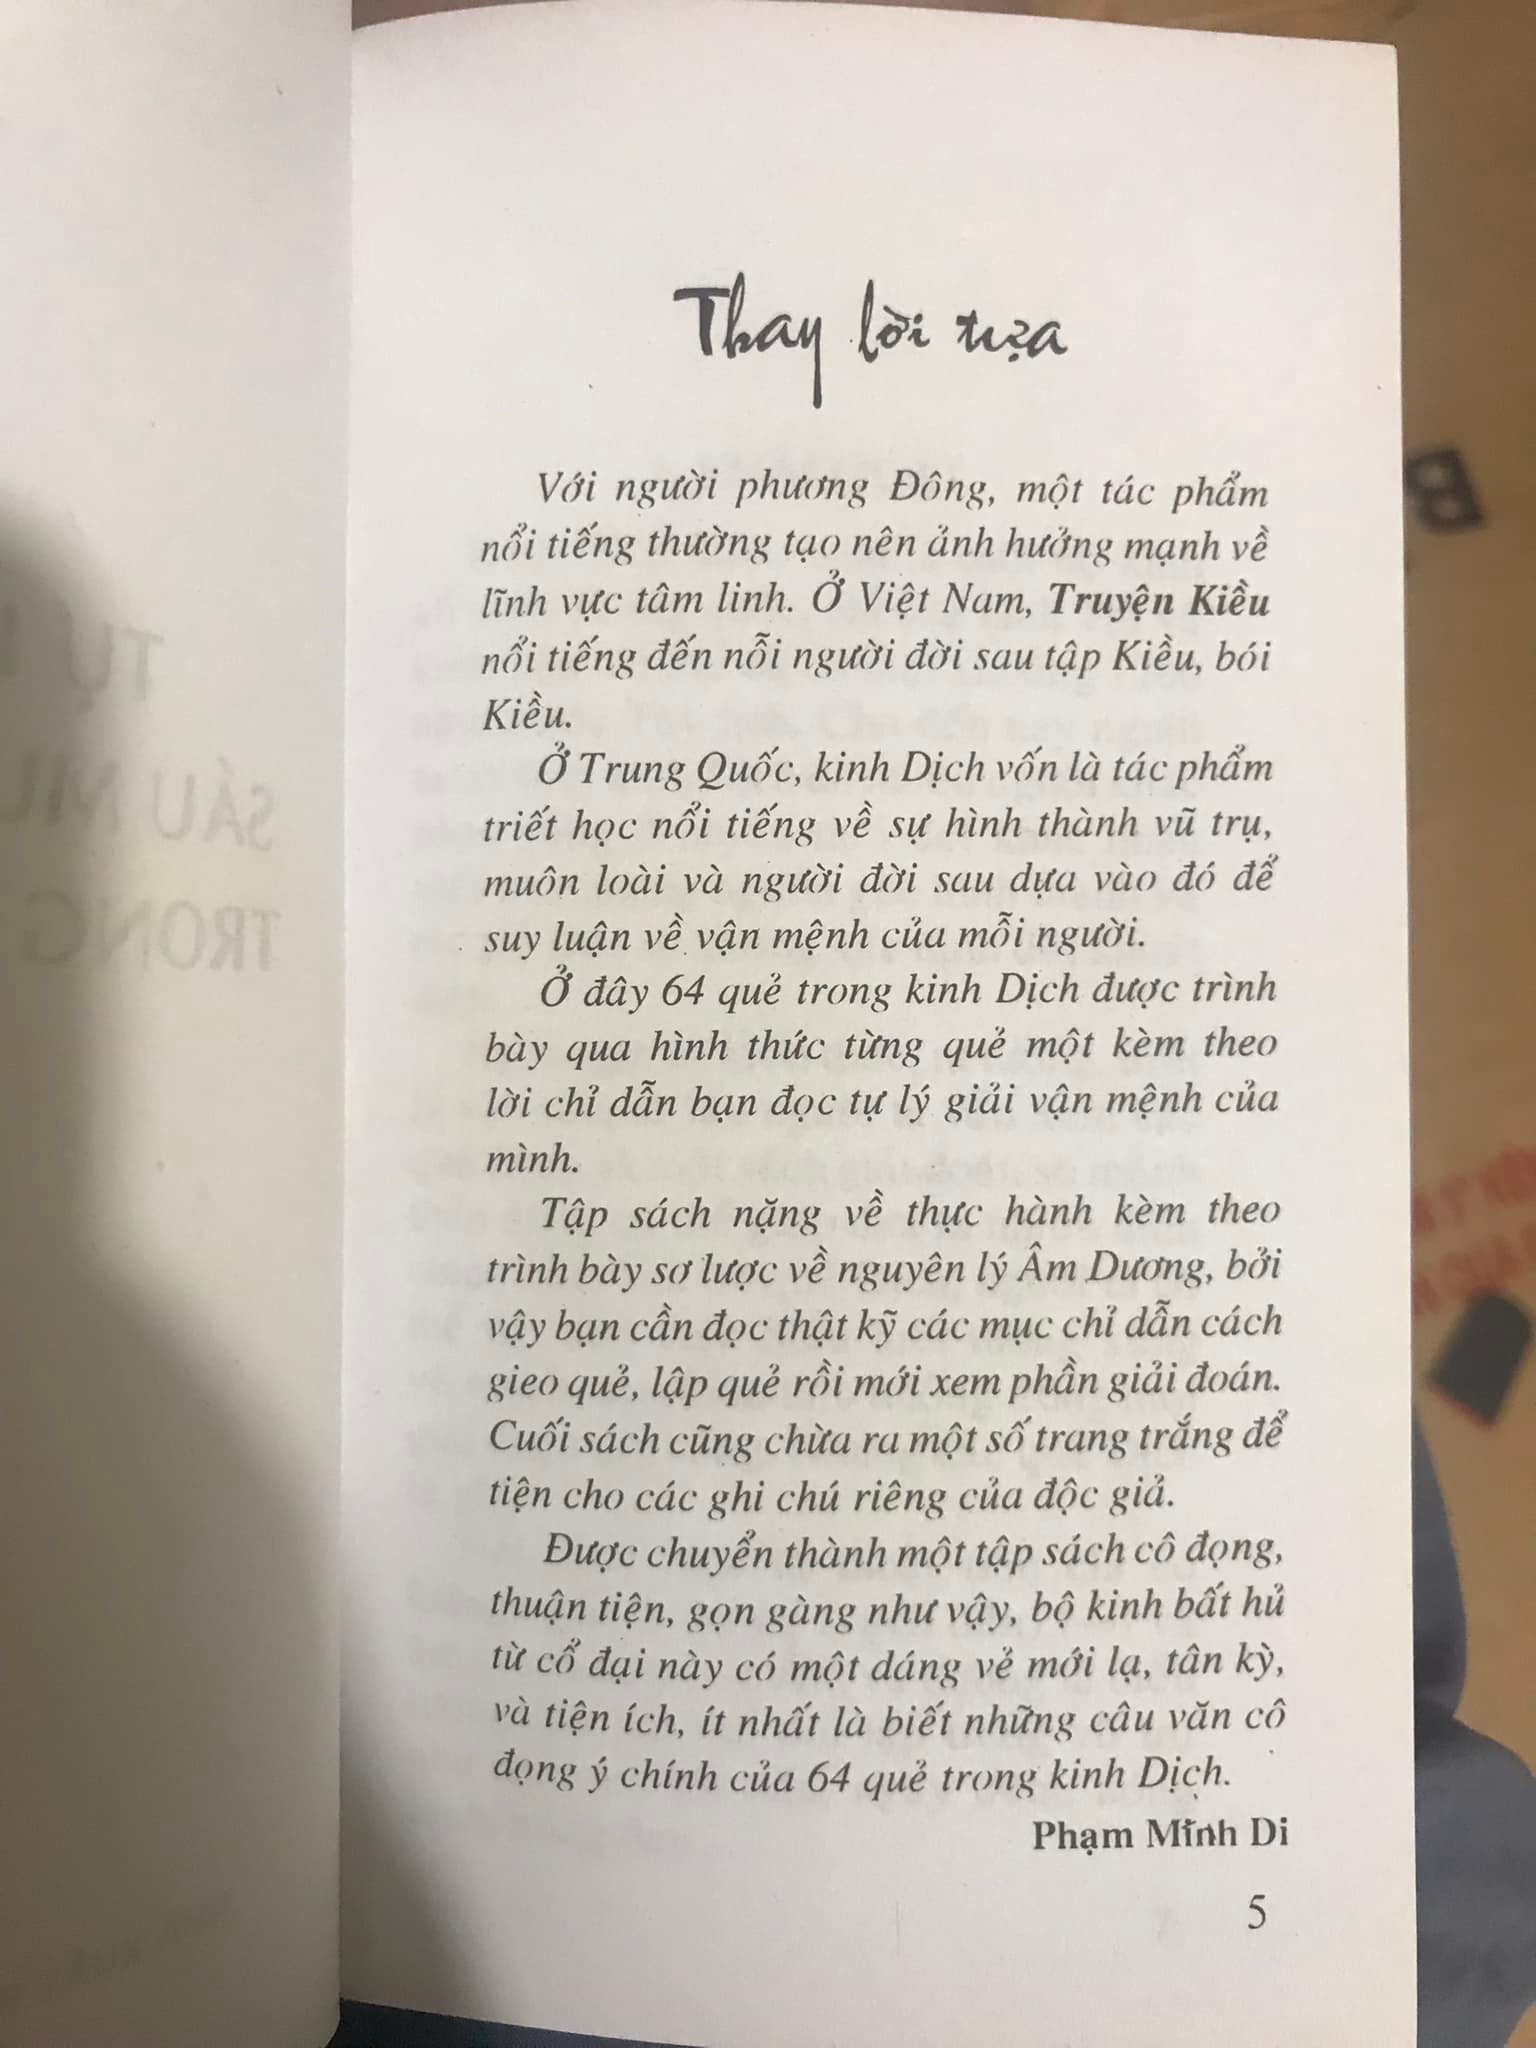 Thay lời tựa
Với người phương Đông, một tác phẩm
nổi tiếng thường tạo nên ảnh hưởng mạnh về
lĩnh vực tâm linh. Ở Việt Nam, Truyện Kiều
nổi tiếng đến nỗi người đời sau tập Kiều, bói
Kiều.
Ở Trung Quốc, kinh Dịch vốn là tác phẩm
triết học nổi tiếng về sự hình thành vũ trụ,
muôn loài và người đời sau dựa vào đó để
suy luận về vận mệnh của mỗi người.
Ở đây 64 quẻ trong kinh Dịch được trình
bày qua hình thức từng quẻ một kèm theo
lời chỉ dẫn bạn đọc tự lý giải vận mệnh của
mình.
Tập sách nặng về thực hành kèm theo
trình bày sơ lược về nguyên lý Âm Dương, bởi
vậy bạn cần đọc thật kỹ các mục chỉ dẫn cách
gieo quẻ, lập quẻ rồi mới xem phần giải đoán.
Cuối sách cũng chừa ra một số trang trắng để
tiện cho các ghi chú riêng của độc giả.
Được chuyển thành một tập sách cô đọng,
thuận tiện, gọn gàng như vậy, bộ kinh bất hủ
từ cổ đại này có một dáng vẻ mới lạ, tân kỳ,
và tiện ích, ít nhất là biết những câu văn cô
đọng ý chính của 64 quẻ trong kinh Dịch.
Phạm Minh Di
5